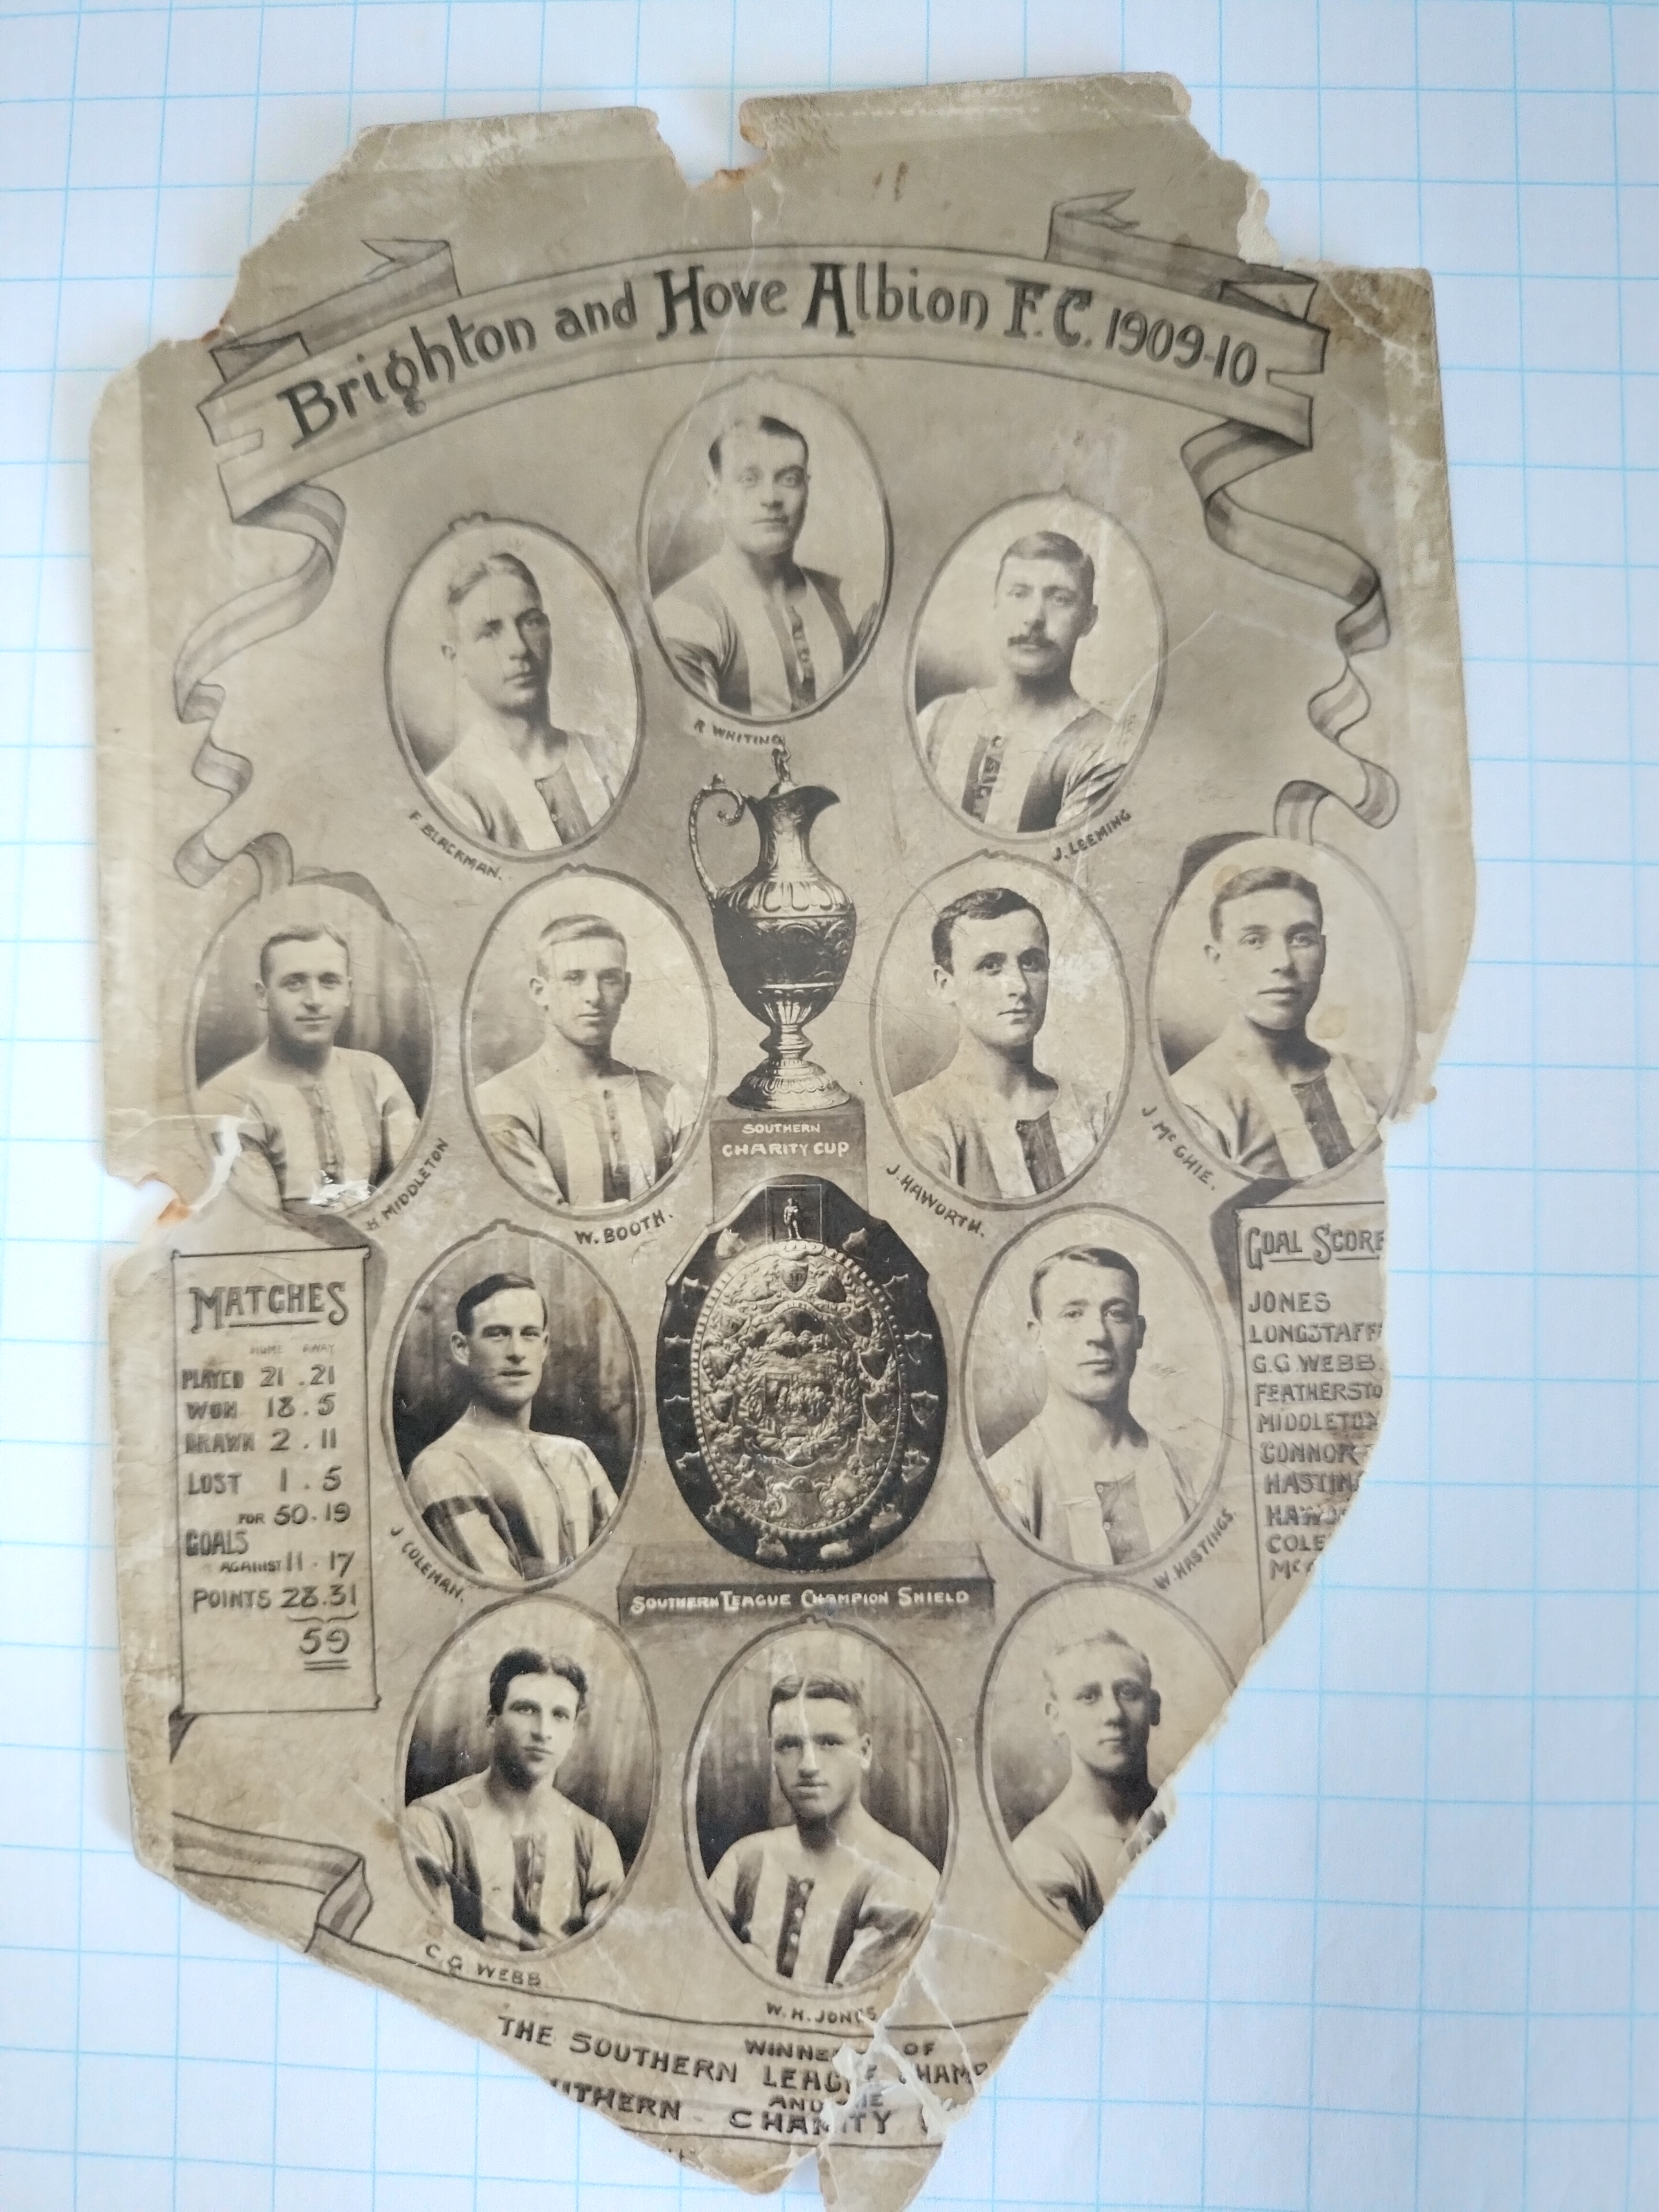 Brighton and Hove Albion F.C. 1909-10
R WHITING
F. BLACKMAN.
J. LEEMING
H MIDDLETON
W. BOOTH.
SOUTHERN
CHARITY CUP
J. HAWORTH.
J. McGHIE.
MATCHES
HOME AWAY
PLAYED 21 . 21
WON 18 . 5
DRAWN 2 . 11
LOST 1 . 5
FOR 50 . 19
GOALS
AGAINST 11 . 17
POINTS 28 . 31
59
J COLEMAN.
SOUTHERN LEAGUE CHAMPION SHIELD
W. HASTINGS.
GOAL SCORE
JONES
LONGSTAFF
G.G WEBB.
FEATHERSTO
MIDDLETON
CONNOR
HASTIN
HAWO
COLE
Mc
C. G WEBB
W. H. JONES
WINNE OF
THE SOUTHERN LEAGUE CHAMP
AND THE
UTHERN CHARITY